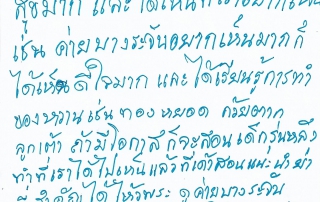 สุขมาก และ ได้เห็น
เช่น ค่ายบางระจันอยากเห็นมากก็
ได้เห็น ดีใจมาก และ ได้เรียนรู้การทำ
ของหวานเช่น ทอง หยอด กล้วยตาก
ลูกเต๋า ถ้ามีโอกาสก็จะสอนเด็กรุ่นหลัง
ทำที่เราได้ไปเห็นแล้วที่เค้าสอนแนะนำมา
ได้ไหว้พระ ดูค่ายบางระจัน